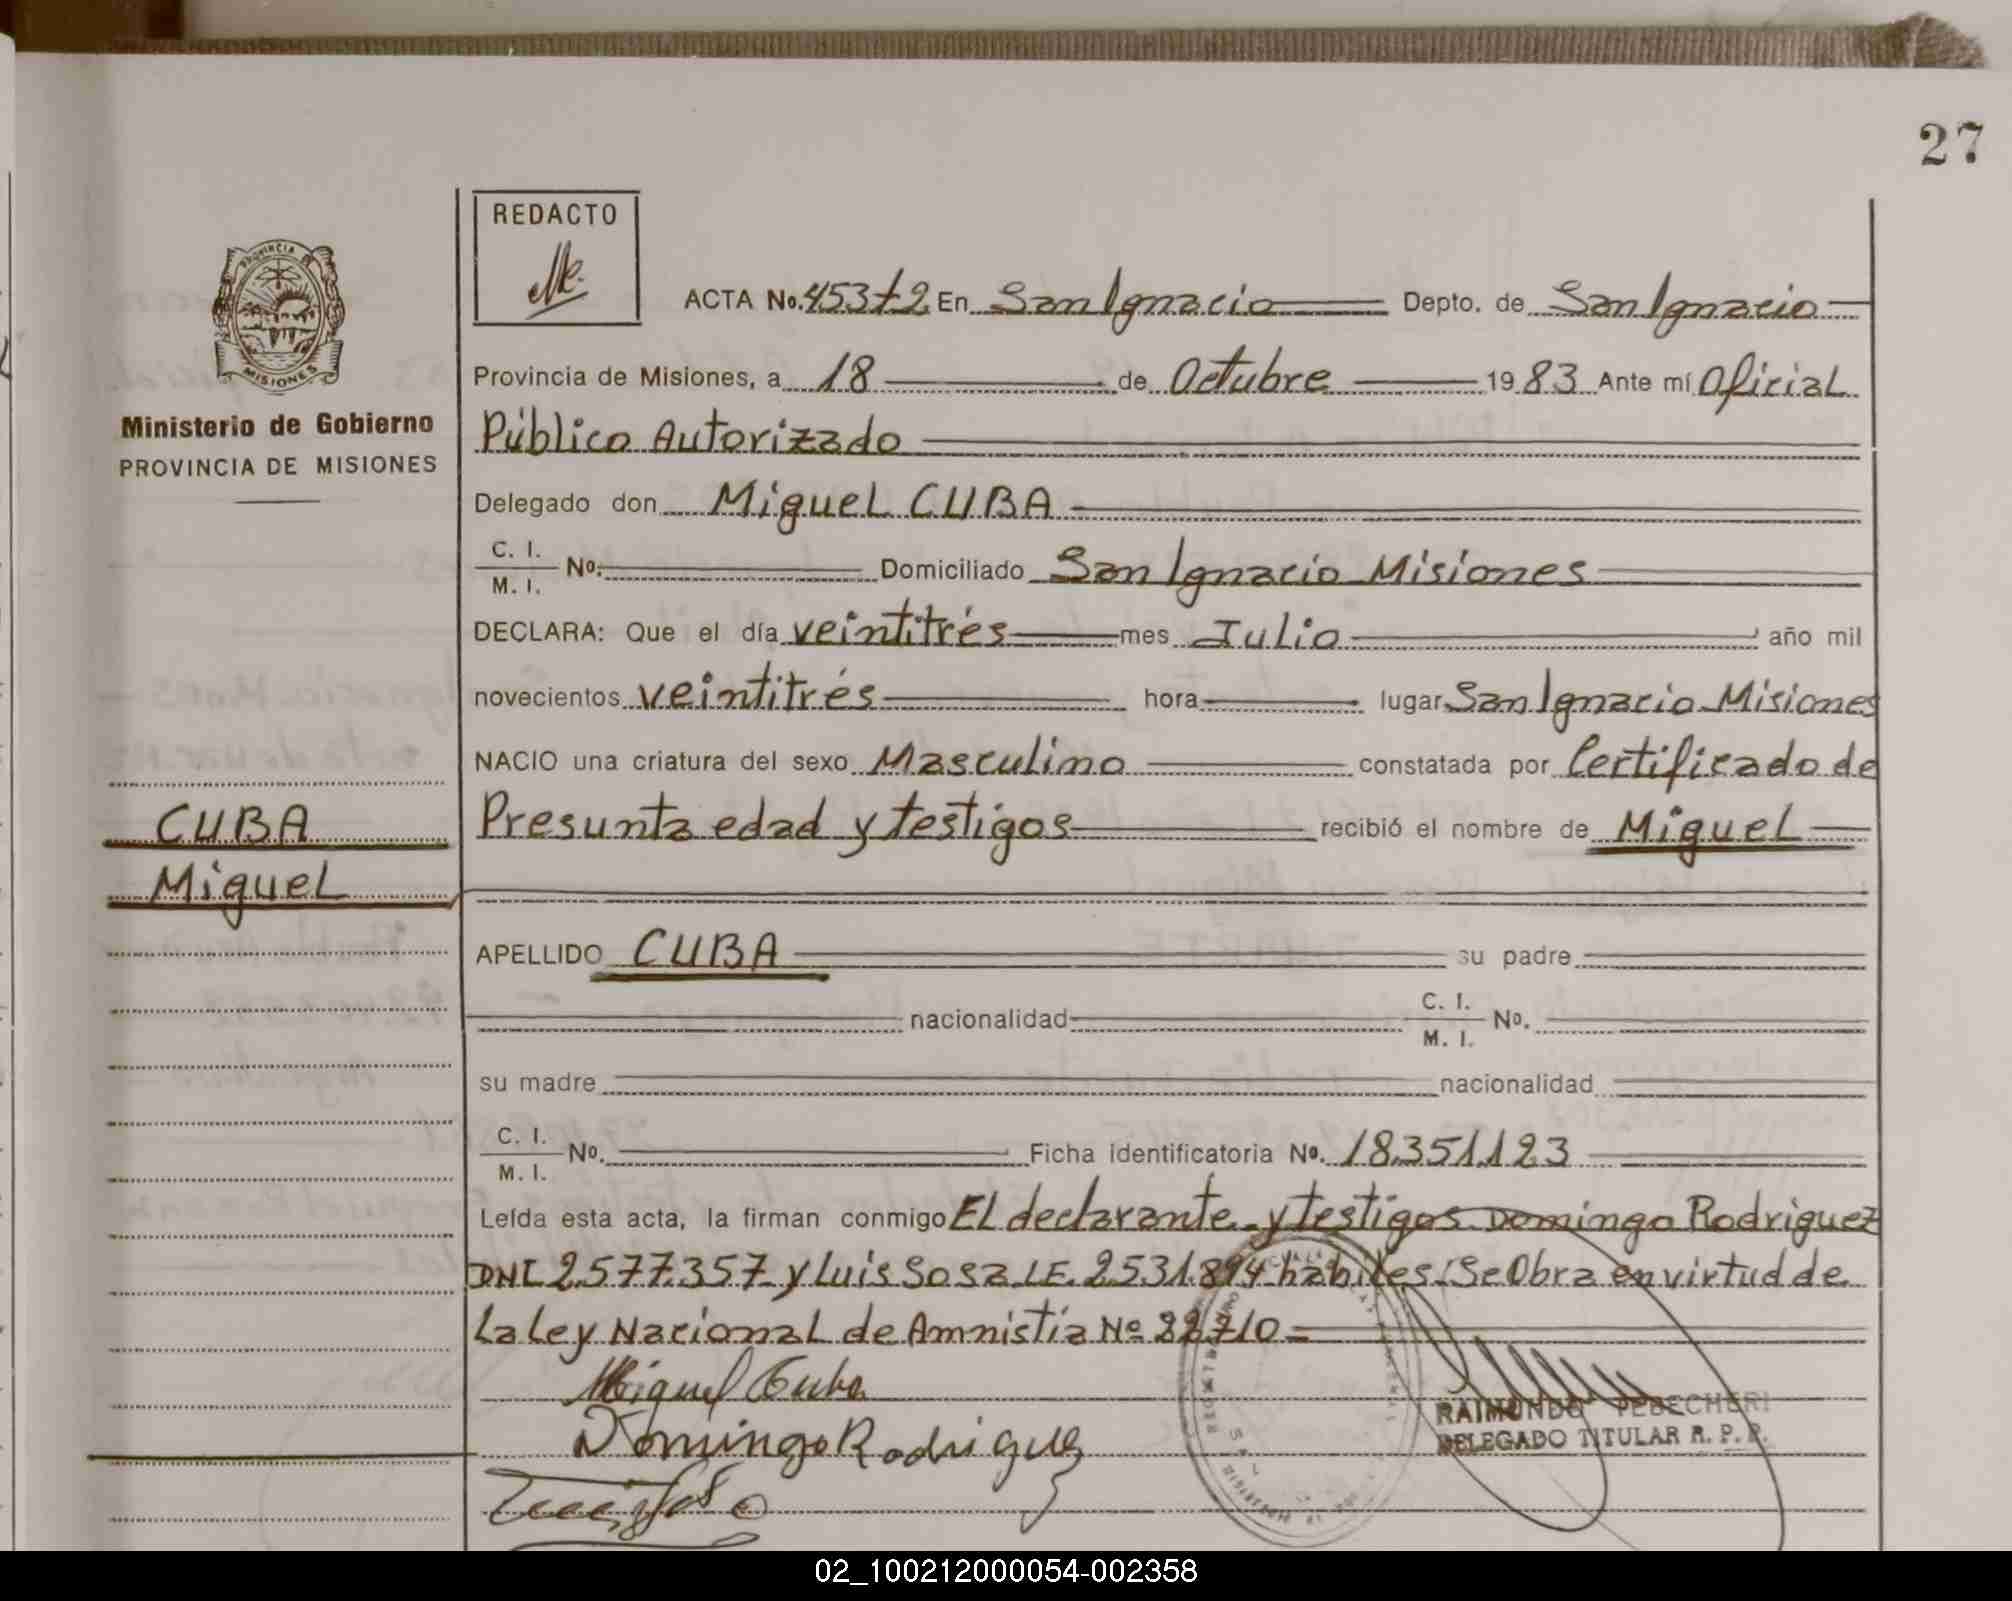 27
REDACTO
PROVINCIA
MISIONES
Ministerio de Gobierno
PROVINCIA DE MISIONES
ACTA No. 453 t2 En San Ignacio Depto. de San Ignacio
Provincia de Misiones, a 18 de Octubre 19 83 Ante mí Oficial
Público Autorizado
Delegado don Miguel CUBA
C. I.
M. I. No: Domiciliado San Ignacio Misiones
DECLARA: Que el día veintitrés mes Julio año mil
novecientos veintitrés hora lugar San Ignacio Misiones
NACIO una criatura del sexo Masculino constatada por Certificado de
Presunta edad y testigos recibió el nombre de Miguel
CUBA
Miguel
APELLIDO CUBA su padre
nacionalidad C. I.
M. I. No.
su madre nacionalidad
C. I.
M. I. No. Ficha identificatoria No. 18.351.123
Leída esta acta, la firman conmigo El declarante y testigos Domingo Rodriguez
DNI 2.577.357 y Luis Sosa LE. 2.531.894 hábiles. Se Obra en virtud de
La Ley Nacional de Amnistía Nº 22710 =
Miguel Cuba
Domingo Rodriguez
RAIMUNDO PEBECHERI
DELEGADO TITULAR R. P. P.
02_100212000054-002358